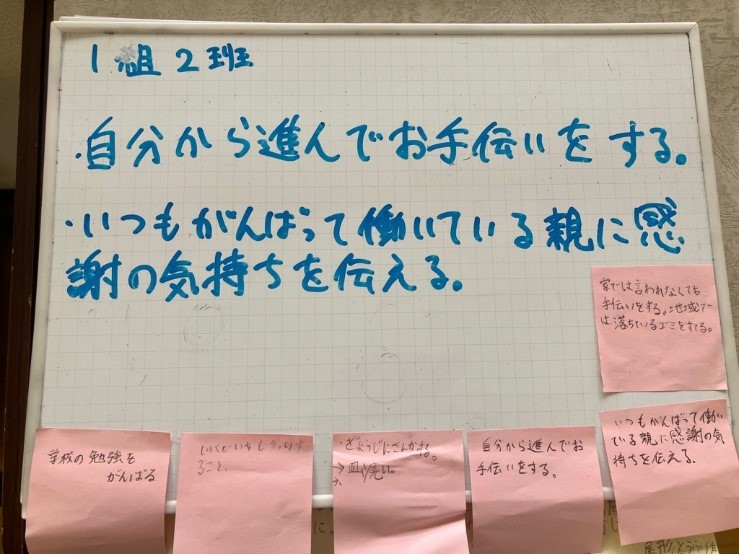 1組2班
・自分から進んでお手伝いをする。
・いつもがんばって働いている親に感
謝の気持ちを伝える。
家では言われなくても
手伝いをする。地域で
は落ちているゴミをすてる。
学校の勉強を
がんばる
ること。
自分から進んでお
手伝いをする。
いつもがんばって働いて
いる親に感謝の気
持ちを伝える。